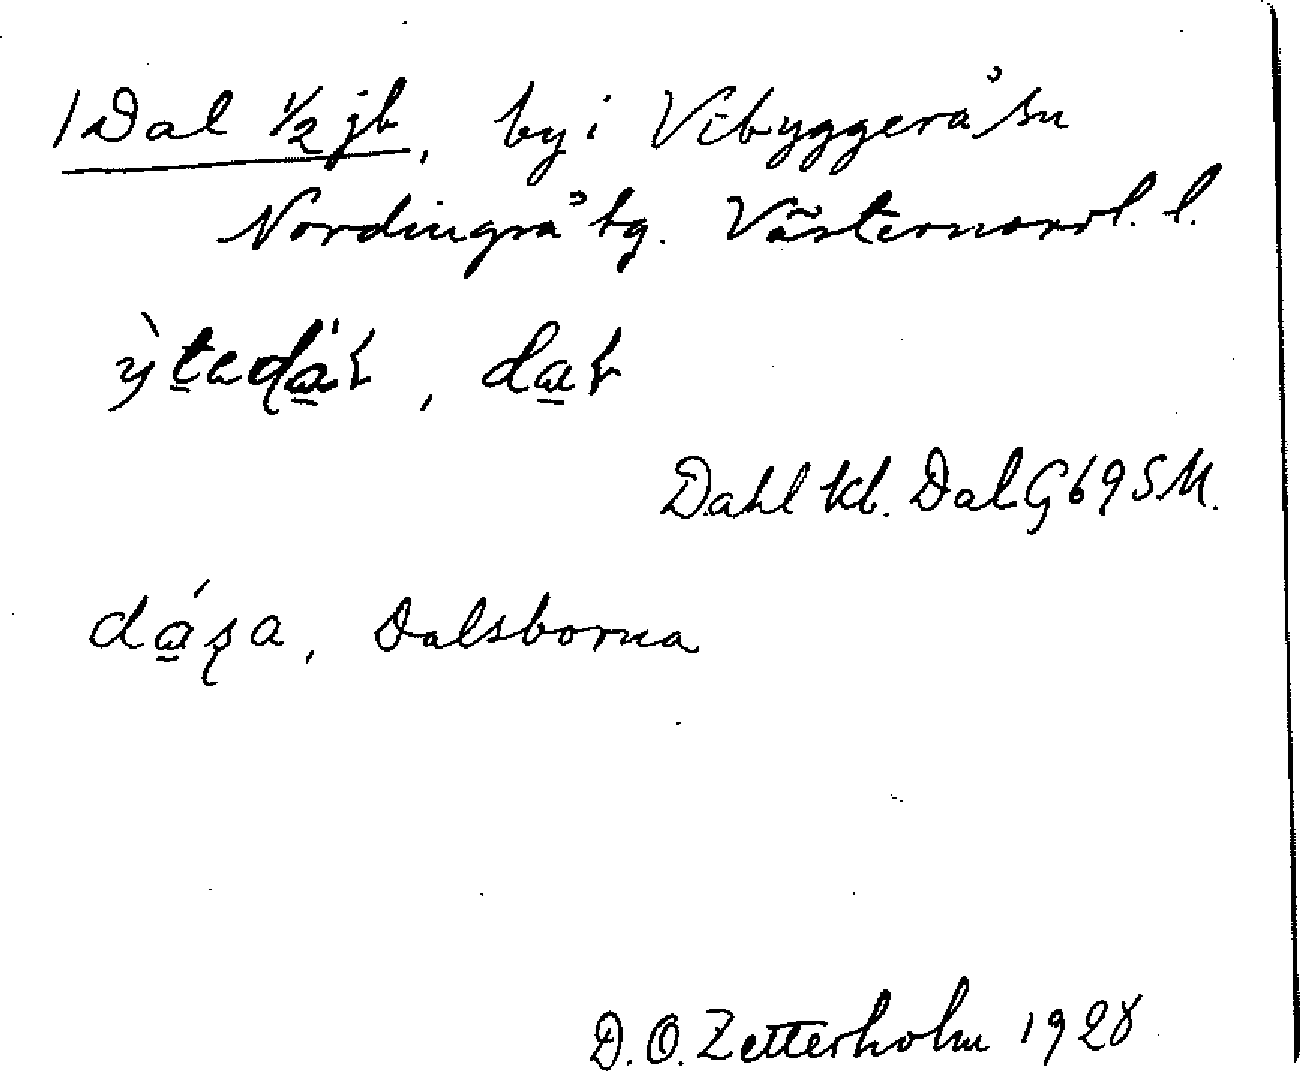 /Dal ½ jb, by i Vibyggerå sn
Nordingrå tg. Västernorrl. l.
dɑ̱ł
Dahl kb. Dal G 69 SM.
Dalsborna
D. O. Zetterholm 1928